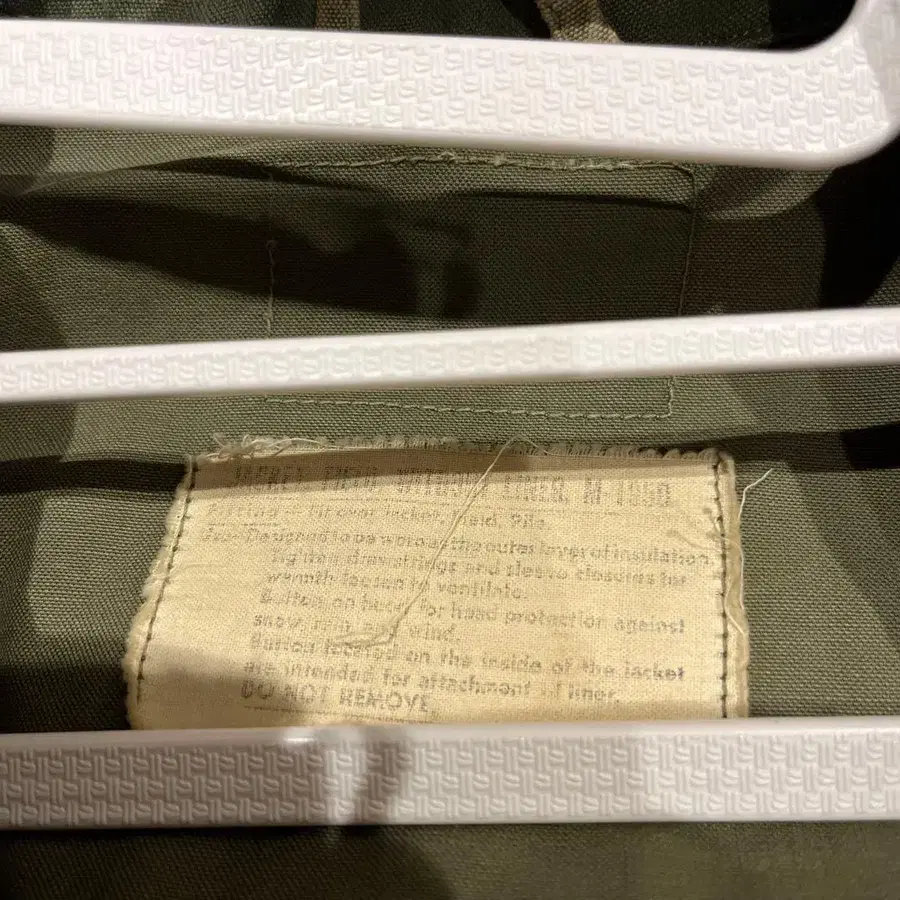 JACKET, FIELD, WITHOUT LINER, M-1950
Fitting- Fit over jacket, field, Pile.
Use- Designed to be worn as the outer layer of insulation.
Tighten drawstrings and sleeve closures for
warmth loosen to ventilate.
Button on hood for head protection against
snow, rain, and wind.
Button located on the inside of the jacket
are intended for attachment of liner.
DO NOT REMOVE